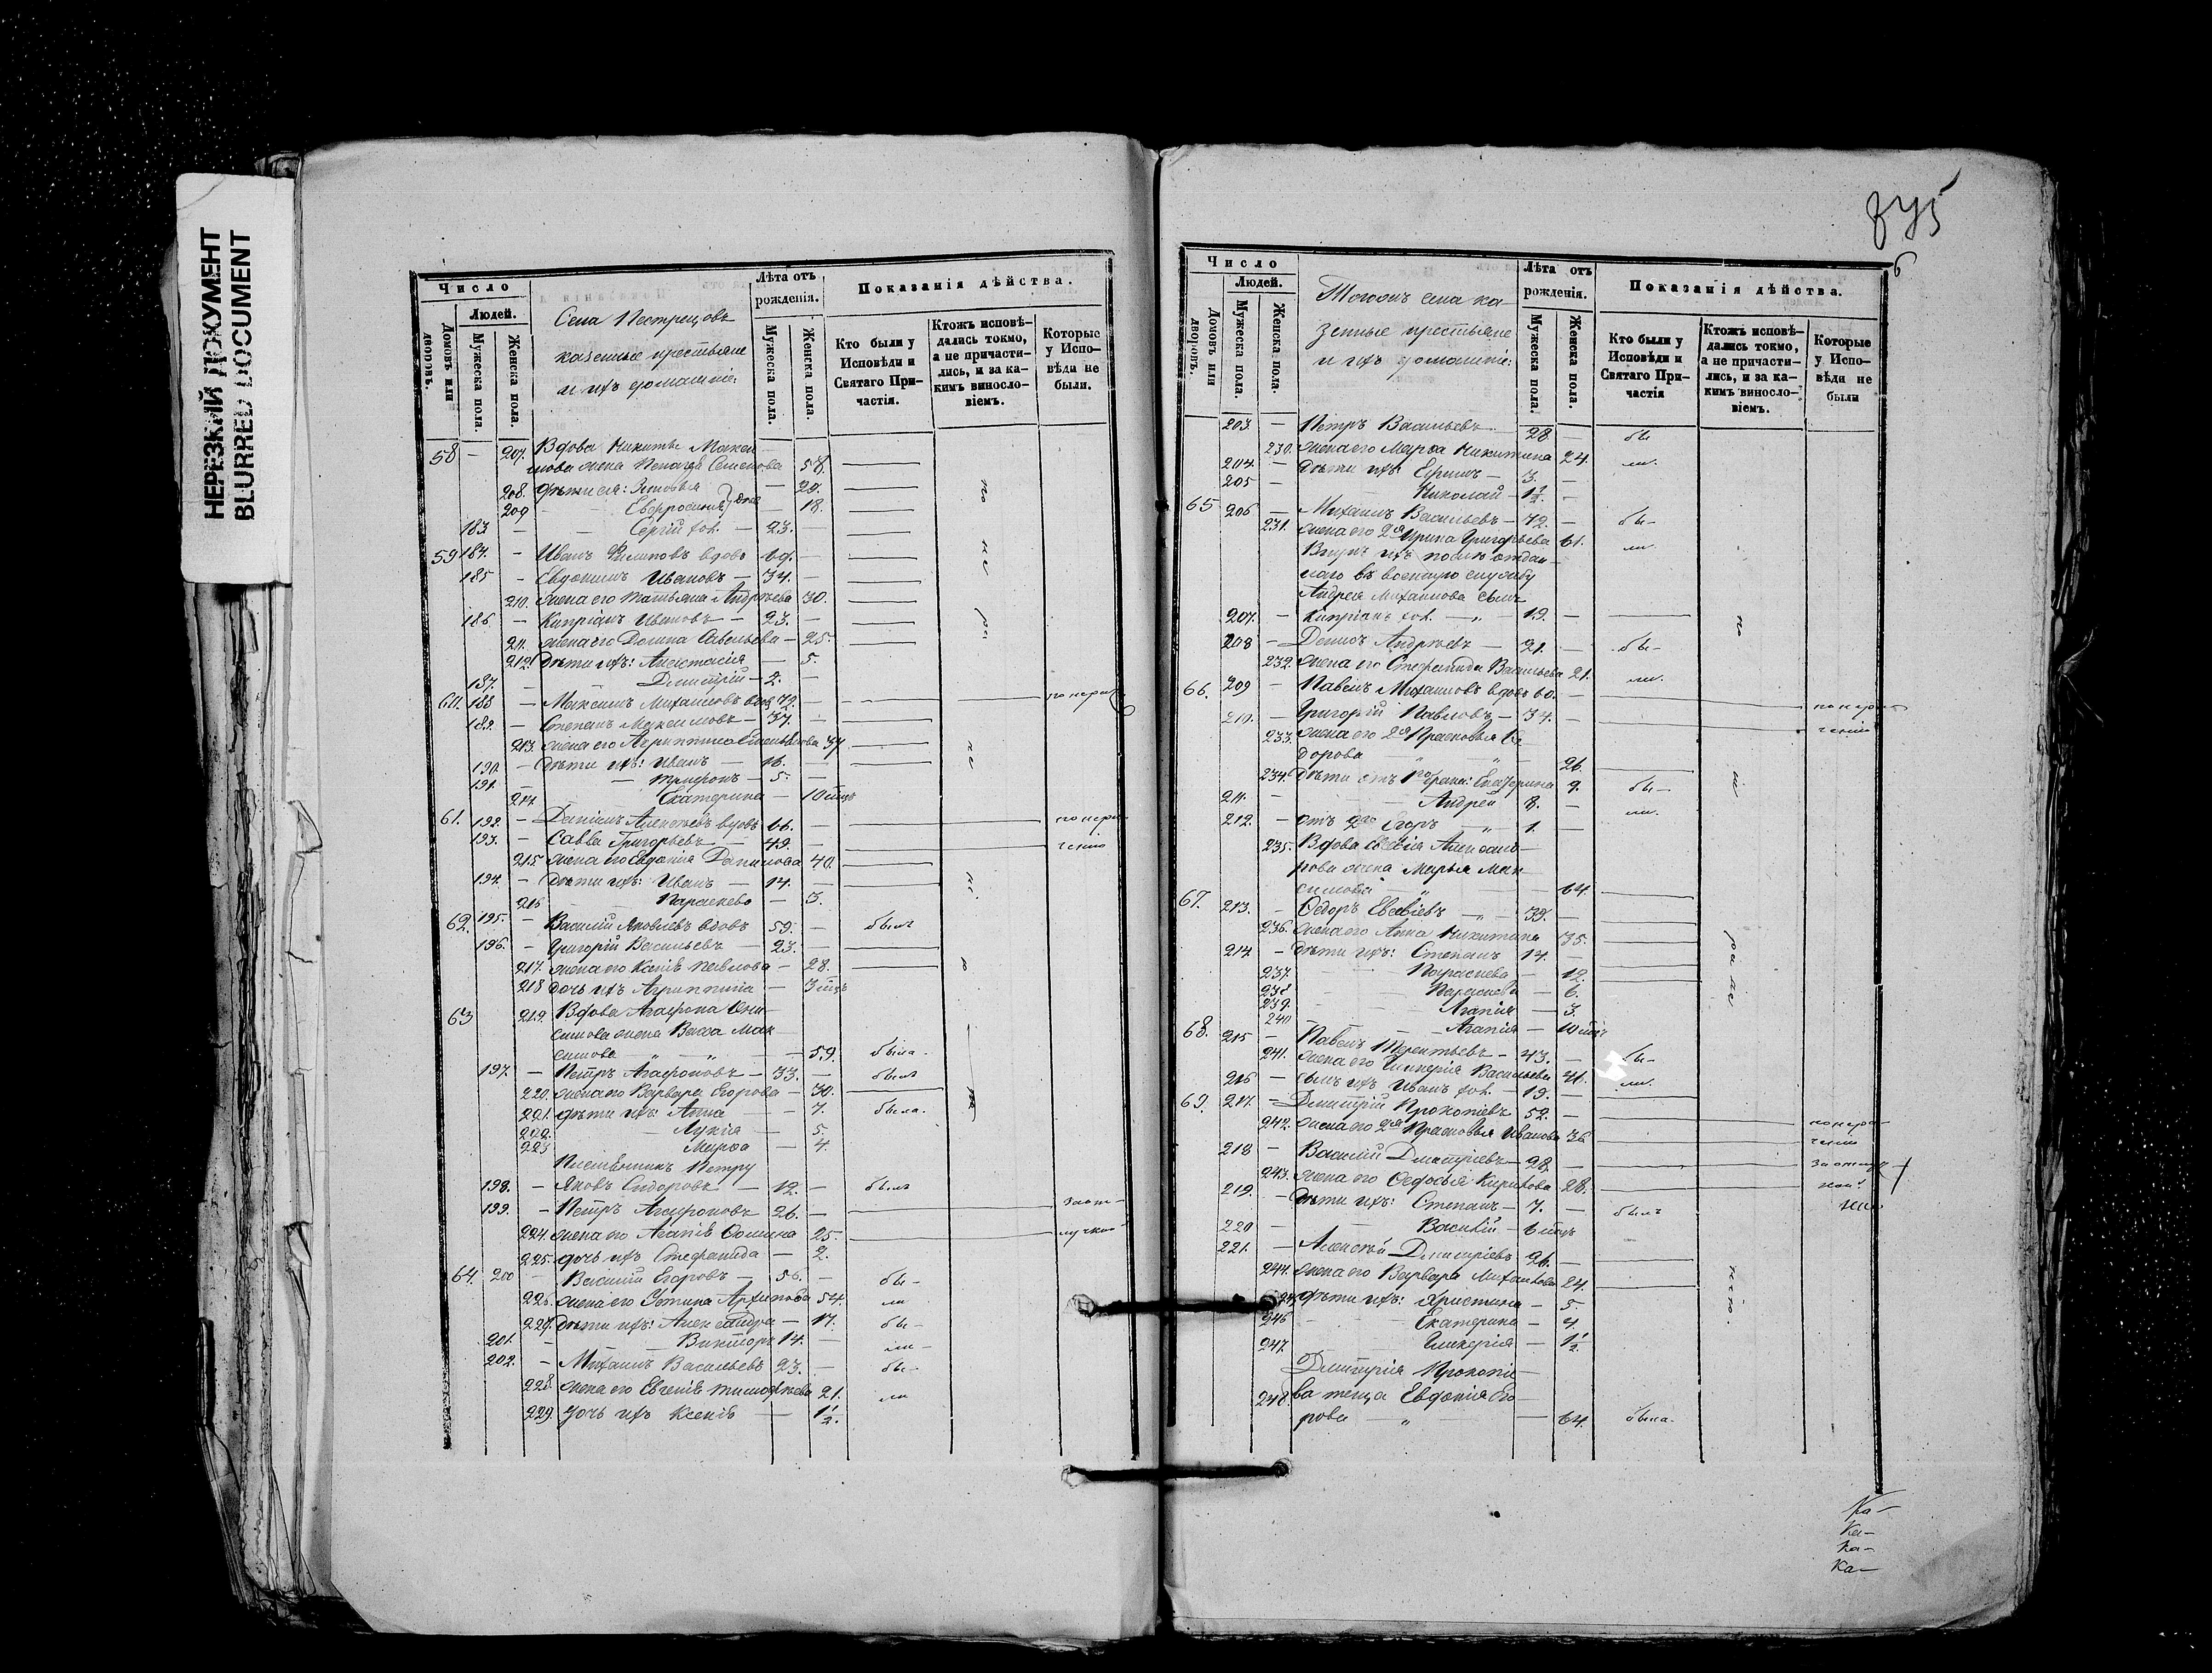 НЕРЕЗКИЙ ДОКУМЕНТ
BLURRED DOCUMENT
Число
Людей.
Домовъ или дворовъ.
Мужеска пола.
Женска пола.
Села Пестрецовъ
казенные крестьяне
и ихъ домашніе:
Лѣта отъ
рожденія.
Мужеска пола.
Женска пола.
Показанія дѣйства.
Кто были у
Исповѣди и
Святаго При-
частія.
Ктожъ исповѣ-
дались токмо,
а не причасти-
лись, и за ка-
кимъ виносло-
віемъ.
Которые
у Испо-
вѣди не
были.
58 — 207. Вдова Никиты Макси-
мова жена Семенова 58.
208. дѣти ея: — 29.
209 Евфросинія — 18.
183 — Сергій хол. — 23.
59 184. — Иванъ Филиповъ вдовъ 69. —
185 — Евдокимъ Ивановъ — 34. —
210. жена его Татьяна Андреева 30.
186 — Кипріанъ Ивановъ — 23. —
211. жена его Домна Савельева — 25.
212. дѣти ихъ: Анастасія — 5.
187. — Димитрій — 2. —
60. 188 — Максимъ Михайловъ вдов 72. — по нера
189. — Степанъ Максимовъ — 37. —
213. жена его Агриппина 37
190. — дѣти ихъ: Иванъ — 16. —
191. — Трифонъ — 5. —
214. Екатерина — 10 мцъ
61. 192. — Даніилъ Алексѣевъ вдовъ 66. — по нера
193. — Савва Григорьевъ — 49. — ченію
215 жена его Евдокія Данилова 40.
194. — дѣти ихъ: Иванъ — 14. —
216 Параскева — 3.
62. 195. — Василій Яковлевъ вдовъ 59. — былъ
196. — Григорій Васильевъ — 23. —
217. жена его Ксенія Павлова — 28.
218 дочь ихъ Агриппина — 3 мцъ
63 219. Вдова Агафона Они-
симова жена Васса Мак-
симова — „ — „ — 59. была.
197. — Петръ Агафоновъ — 33. — былъ
220. жена его Варвара Егорова — 30.
221. дѣти ихъ: Анна — 7. была.
222. Лукія — 5.
223 Марѳа — 4.
Племянникъ Петру
198. — Яковъ Сидоровъ — 12. — былъ
199. — Петръ Агафоновъ 26. — за от-
224. жена его Агапія Ѳомина 25. лучкой
225. дочь ихъ Стефанида — 2.
64. 200 — Василій Егоровъ — 56. — бы-
226. жена его Устина Архипова 54. ли
227. дѣти ихъ: Александра — 17. бы-
201. — Викторъ 14. — ли-
202. — Михаилъ Васильевъ 23. — бы-
228. жена его Евгенія Тимоѳеева 21. ли
229 дочь ихъ Ксенія — 1½.
875
6
Число
Людей.
Домовъ или дворовъ.
Мужеска пола.
Женска пола.
Тогожъ села ка-
зенные крестьяне
и ихъ домашніе:
Лѣта отъ
рожденія.
Мужеска пола.
Женска пола.
Показанія дѣйства.
Кто были у
Исповѣди и
Святаго При-
частія
Ктожъ исповѣ-
дались токмо,
а не причасти-
лись, и за ка-
кимъ виносло-
віемъ.
Которые
у Испо-
вѣди не
были
203. — Петръ Васильевъ 28 — бы
230. жена его Марѳа Никитина 24. ли.
204. — дѣти ихъ: Ефимъ — 3. —
205 — Николай — 1½. —
65 206 — Михаилъ Васильевъ — 72. — бы-
231. жена его 2я Ирина Григорьева 61. ли.
Внукъ ихъ послѣ отдан-
наго въ военную службу
Андрея Михайлова сынъ
207. — Кипріанъ хол. — „ — 19. —
208 — Денисъ Андреевъ — 21. — бы-
232. жена его Стефанида Васильева 21. ли.
66. 209 — Павелъ Михаиловъ вдовъ 60. — по нера
210. — Григорій Павловъ — 34. — ченію
233. жена его 2я Прасковья Ѳе-
дорова „ „ 26.
234. дѣти отъ 1го брака: Екатерина 9. бы-
211. — Андрей — 8. — ли.
212. — отъ 2го Егоръ „ 1. —
235. Вдова Евсевія Александ-
рова жена Марья Мак-
симова — „ — 64.
67. 213. — Ѳедоръ Евсевіевъ — „ — 39. —
236. жена его Анна Никитина 35.
214 — дѣти ихъ: Степанъ 14. —
237. Параскева — 12.
238 Параскева — 6.
239. Агапія — 3.
240 Агапія — 10 мцъ
68. 215 — Павелъ Терентьевъ — 43. — бы-
241. жена его Гликерія Васильева 41. ли.
216 — сынъ ихъ Иванъ хол. 19. —
69. 217. — Дмитрій Прокопіевъ 52. —
242. жена его 2я Прасковья Иванова 36. по нера-
ченію
218 — Василій Дмитріевъ — 28. — за отлуч-
243. жена его Ѳеодосья Кирилова 28. кой
219. — дѣти ихъ: Степанъ — 7. — былъ
220 — Василій — 6 мцъ
221. — Алексѣй Дмитріевъ 26. —
244. жена его Варвара Михайлова 24.
245 дѣти ихъ: Христина — 5.
246 Екатерина — 4.
247. Гликерія — 1½
Дмитрія Прокопіе-
248. ва теща Евдокія Его-
рова — „ — 64. была.
Ка-
Ка-
Ка-
Ка-